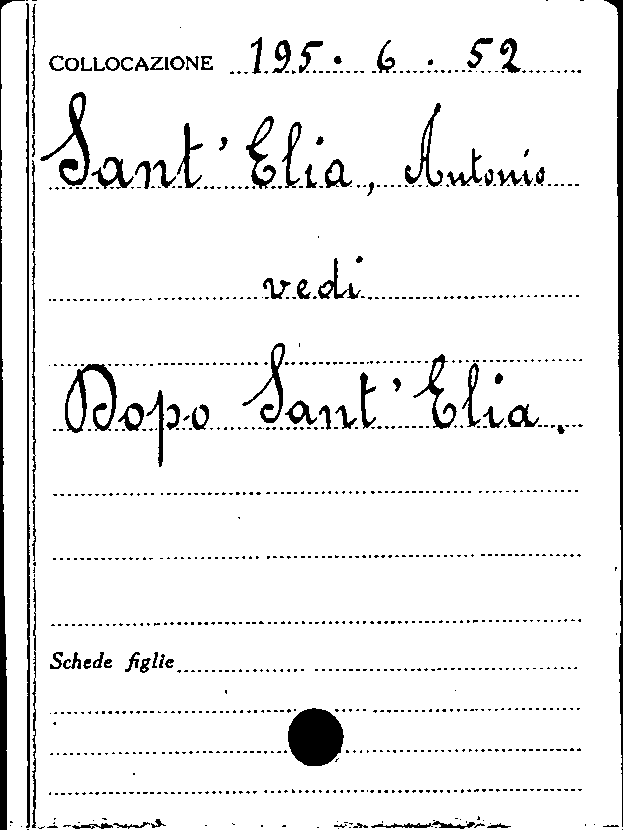 COLLOCAZIONE 195. 6. 52
Sant' Elia, Antonio
vedi
Dopo Sant' Elia.
Schede figlie